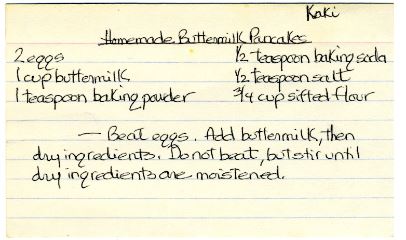 Kaki
Homemade Buttermilk Pancakes
2 eggs 1/2 teaspoon baking soda
1 cup buttermilk 1/2 teaspoon salt
1 teaspoon baking powder 3/4 cup sifted flour
— Beat eggs. Add buttermilk, then
dry ingredients. Do not beat, but stir until
dry ingredients are moistened.